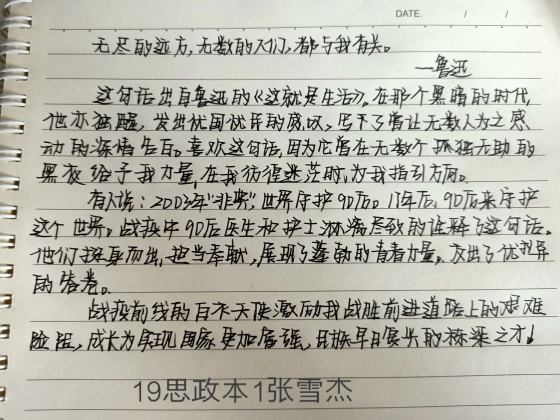 DATE. / /
无尽的远方，无数的人们，都与我有关。
—鲁迅
这句话出自鲁迅的《这就是生活》。在那个黑暗的时代，
他亦独醒，发出忧国忧民的感叹，写下了曾让无数人为之感
动的深情告白。喜欢这句话，因为它曾在无数个孤独无助的
黑夜给予我力量，在我彷徨迷茫时，为我指引方向。
有人说：2003年"非典"，世界守护90后。17年后，90后来守护
这个世界。战疫中90后医生和护士淋漓尽致的诠释了这句话。
他们挺身而出，担当奉献，展现了蓬勃的青春力量，交出了优异
的答卷。
战疫前线的白衣天使激励我战胜前进道路上的艰难
险阻，成长为实现国家更加富强，民族早日复兴的栋梁之才！
19思政本1张雪杰